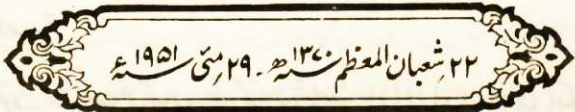 ۲۲ شعبان المعظم ۱۳۷۰ھ ۔ ۲۹ مئی ۱۹۵۱ء